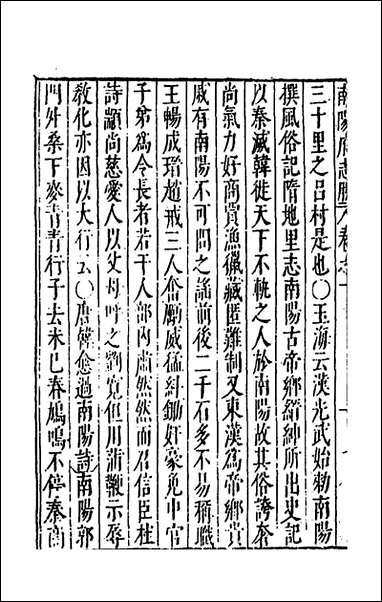 南陽府志勝 卷之
三十里之呂村是也〇玉海云漢光武始勅南陽
撰風俗記隋地里志南陽古帝鄉縉紳所出史記
以秦滅韓徙天下不軌之人於南陽故其俗誇奢
尚氣力好商賈漁獵藏匿難制又東漢為帝鄉貴
戚有南陽不可問之謠前後二千石多不易稱職
王暢成瑨趙戒三人奮勵威猛糾鋤奸豪免中官
子弟為令長者若干人部內肅然然而召信臣杜
詩顓尚慈愛人以父母呼之劉寬但用蒲鞭示辱
教化亦因以大行云〇唐韓愈過南陽詩南陽郭
門外桑下麥青青行子去未已春鳩鳴不停秦商